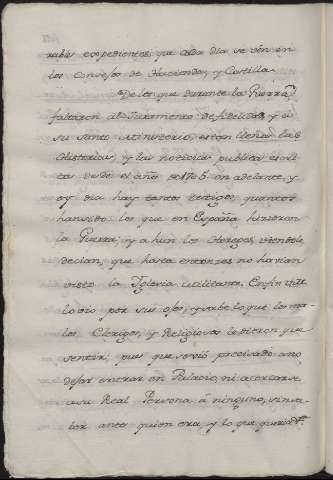 rables expedientes, que cada dia se vèn en
los Consejos de Hacienda, y Castilla.
De los que durante la Guerra,
faltaron al Juramento de fidelidad, y à
su Santo Ministerio, estàn llenas las
Historias, y las noticias publicas escri-
tas desde el año de 1706 en adelante, y
oy dia hay tantos testigos, quantos
han sido los que en España hicieron
la Guerra; y à hun los Hereges, viendolo,
decian, que hasta entonzes no havian
visto la Iglesia militante. En fin
lo vio por sus ojos, y sabe lo que los ma-
los Clerigos, y Religiosos le dieron que
sentir, pues que se viò precisado à no
dejar entrar en Palacio, ni acercarse
a su Real Persona à ninguno, sin sa-
ber antes quien era, y lo que queria